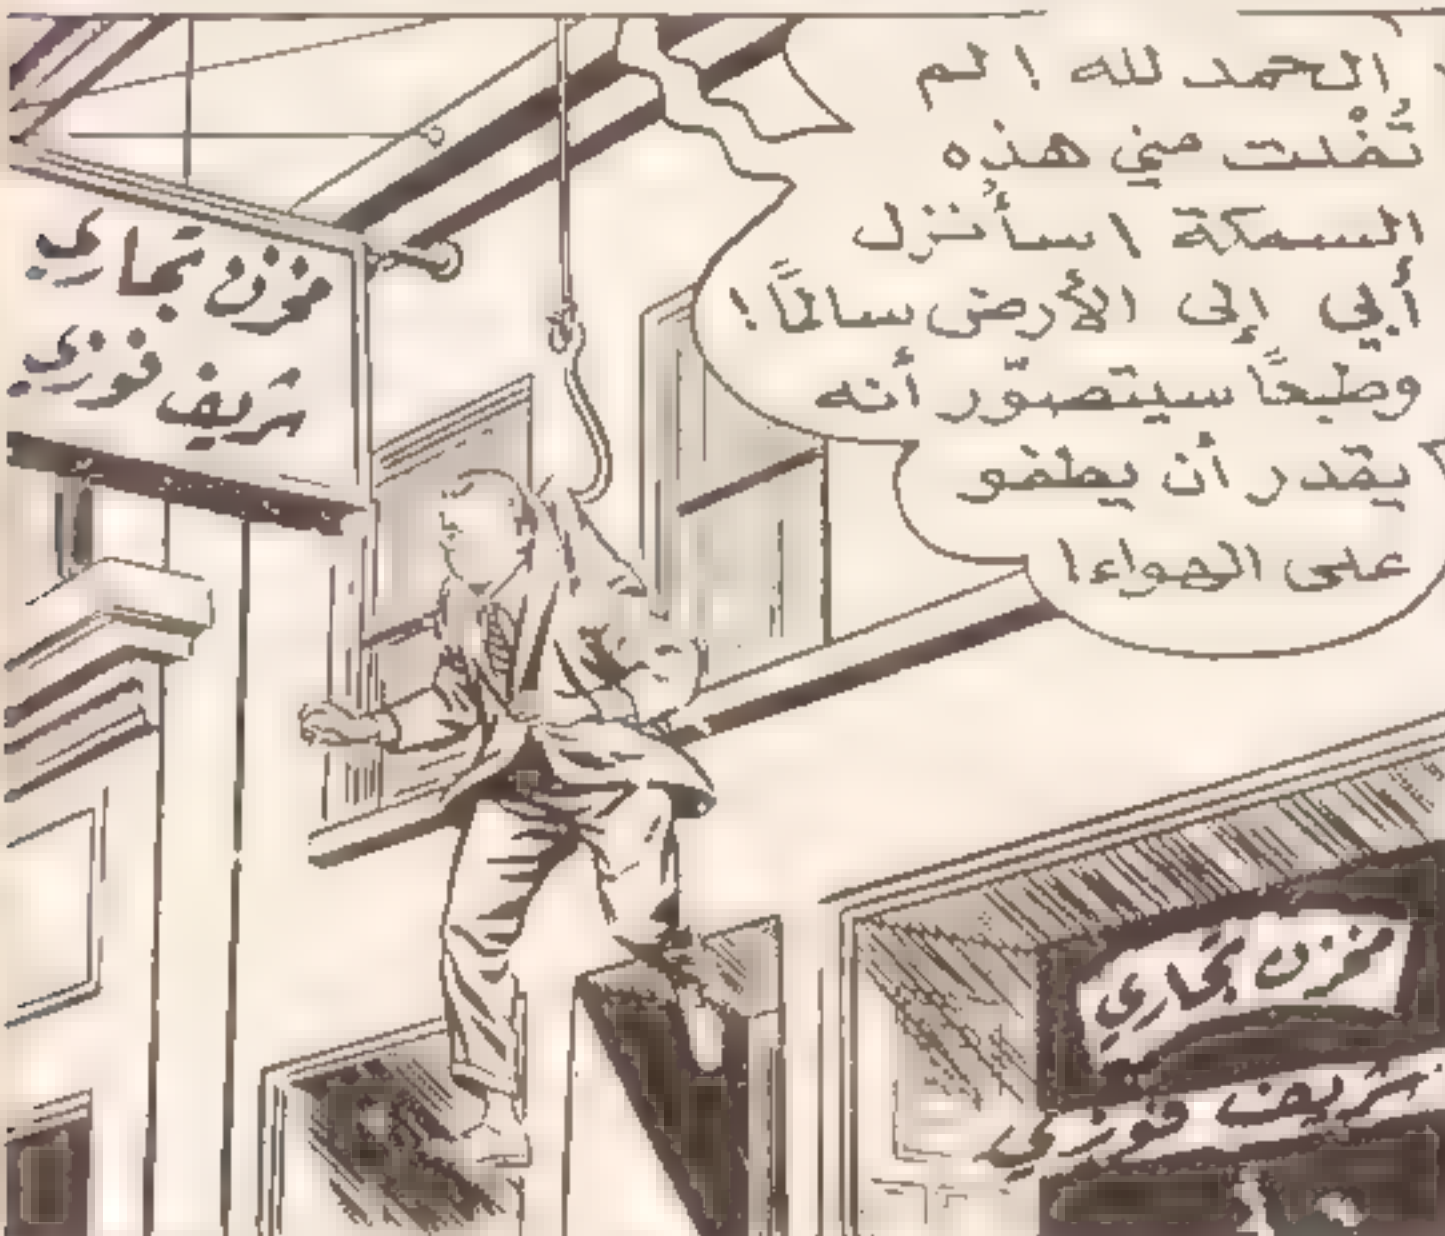 الحمد لله ! لم
تُفْلت مني هذه
السمكة ! سأُنزل
أَبي إلى الأرض سالمًا !
وطبعًا سيتصوّر أنه
يقدر أن يطفو
على الهواء !
مخزن تجاري
شريف فوزي
مخزن تجاري
شريف فوزي